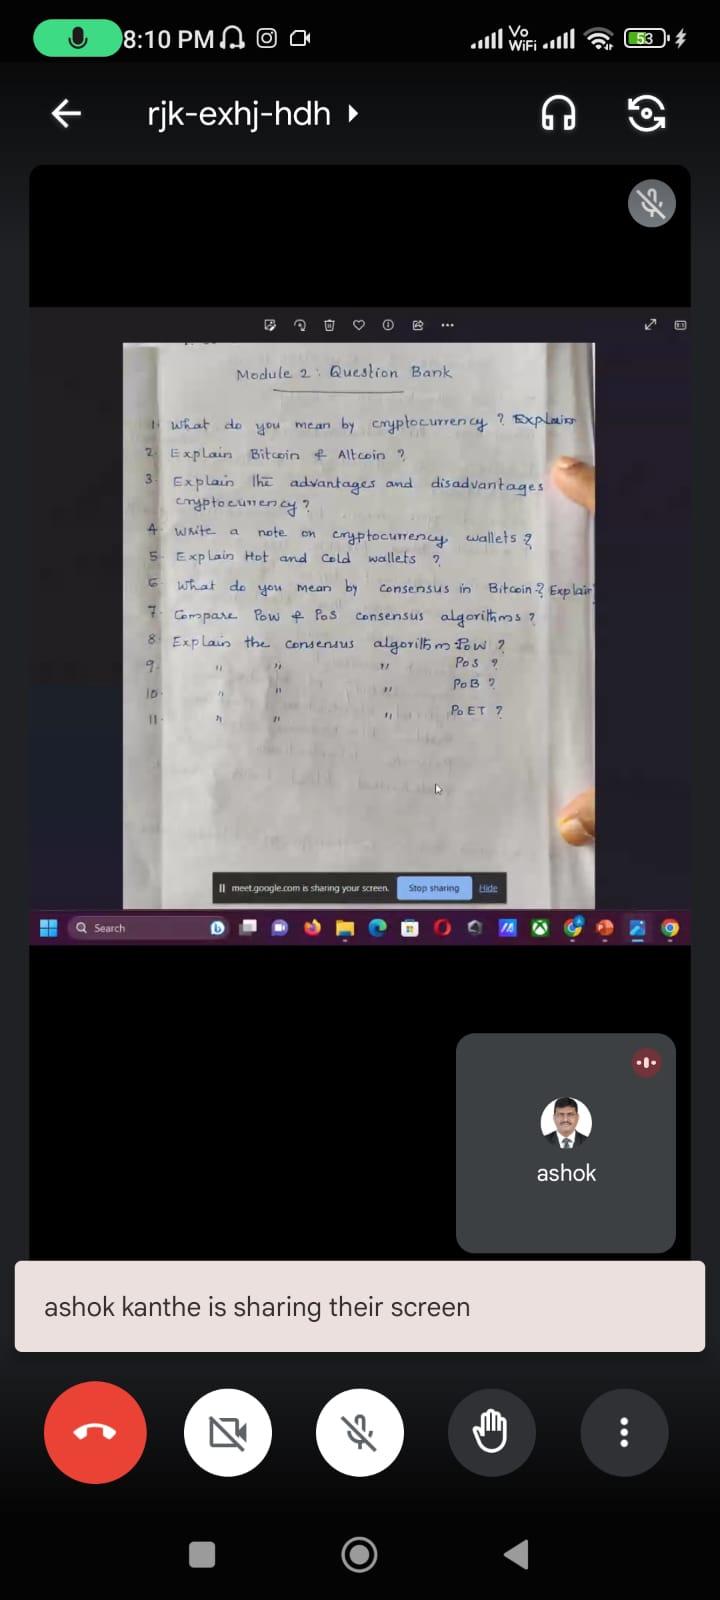 8:10 PM
Vo
WiFi
53
rjk-exhj-hdh
Module 2 : Question Bank
1. What do you mean by cryptocurrency ? Explain
2. Explain Bitcoin & Altcoin ?
3. Explain the advantages and disadvantages
cryptocurrency ?
4. Write a note on cryptocurrency wallets ?
5. Explain Hot and Cold wallets ?
6. What do you mean by consensus in Bitcoin ? Explain
7. Compare PoW & PoS consensus algorithms ?
8. Explain the consensus algorithm PoW ?
9. " " " PoS ?
10. " " " PoB ?
11. " " " PoET ?
meet.google.com is sharing your screen. Stop sharing Hide
Search
ashok
ashok kanthe is sharing their screen